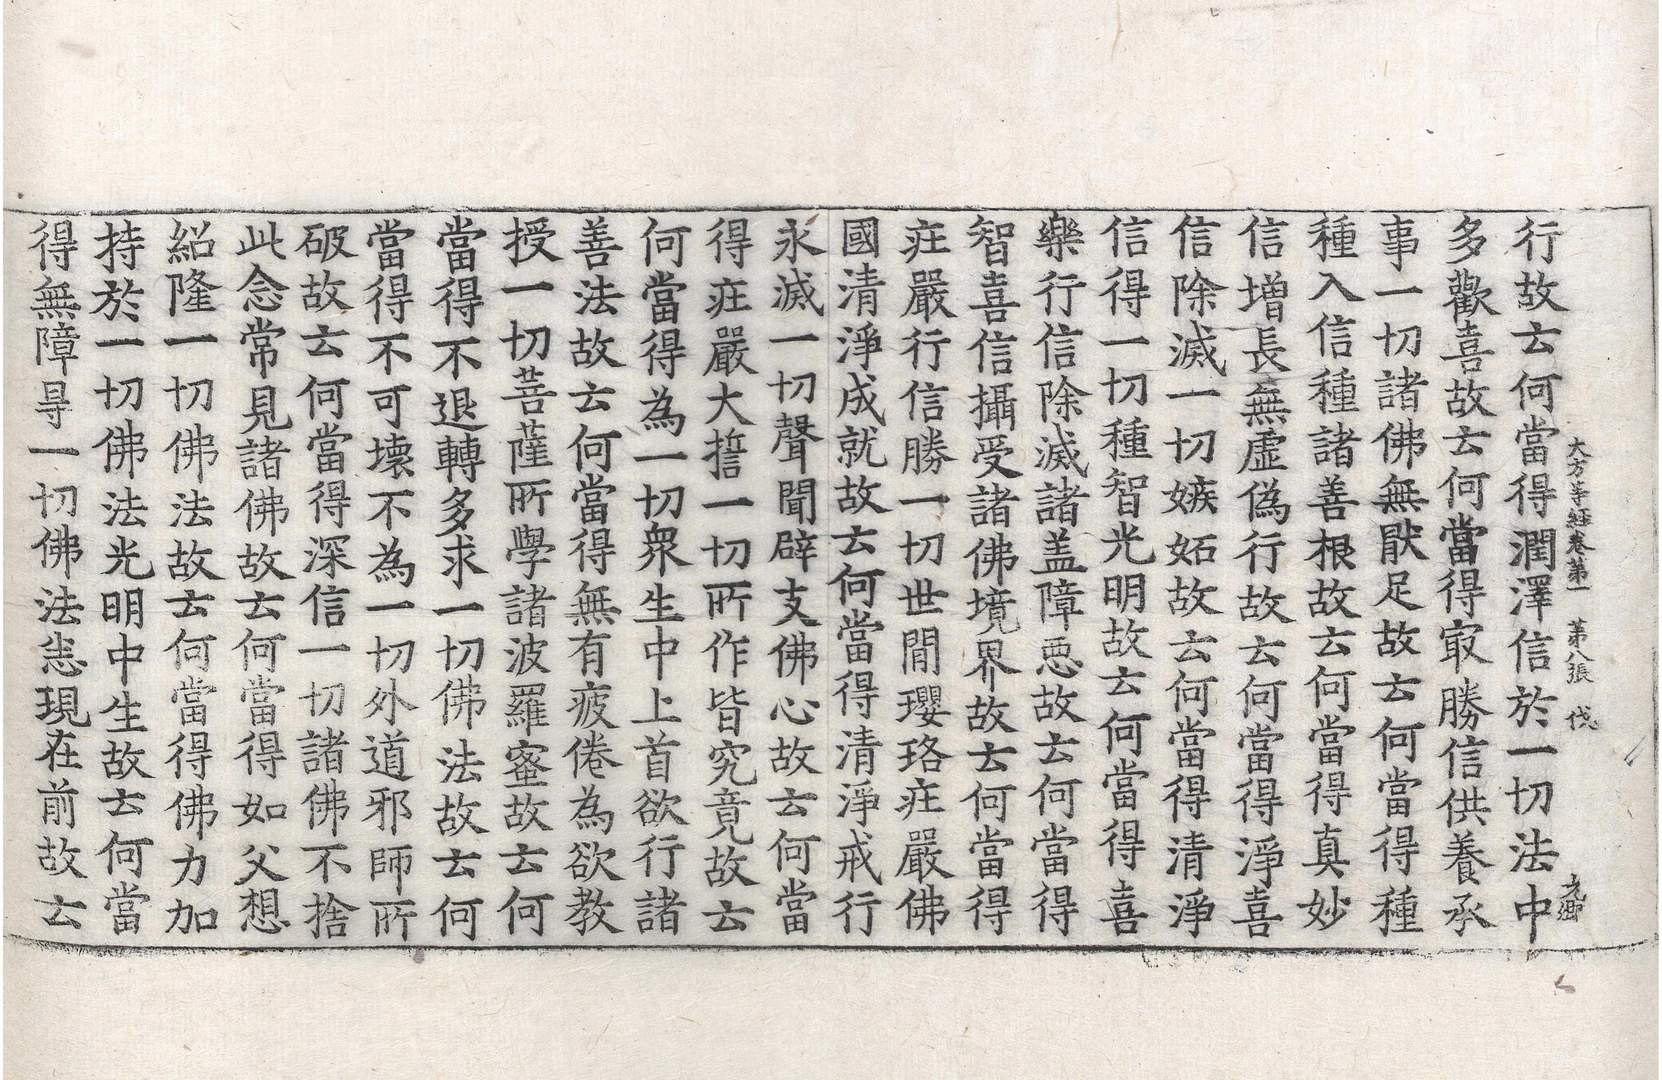 大方等經卷第一　第八張　伐
行故去何當得潤澤信於一切法中
多歡喜故去何當得㝡勝信供養承
事一切諸佛無猒足故去何當得種
種入信種諸善根故去何當得真妙
信增長無虛僞行故去何當得淨喜
信除滅一切嫉妬故去何當得清淨
信得一切種智光明故去何當得喜
樂行信除滅諸盖障惡故去何當得
智喜信攝受諸佛境界故去何當得
莊嚴行信勝一切世間瓔珞莊嚴佛
國清淨成就故去何當得清淨戒行
永滅一切聲聞辟支佛心故去何當
得莊嚴大誓一切所作皆究竟故去
何當得為一切衆生中上首欲行諸
善法故去何當得無有疲倦為欲教
授一切菩薩所學諸波羅蜜故去何
當得不退轉多求一切佛法故去何
當得不可壞不為一切外道邪師所
破故去何當得深信一切諸佛不捨
此念常見諸佛故去何當得如父想
紹隆一切佛法故去何當得佛力加
持於一切佛法光明中生故去何當
得無障㝵一切佛法悉現在前故去